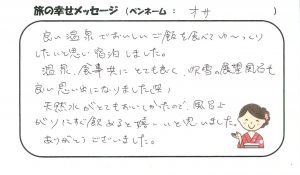 旅の幸せメッセージ （ペンネーム ： オサ ）
良い温泉でおいしいご飯を食べてゆ〜っくり
したいと思い宿泊しました。
温泉、食事共にとても良く、吹雪の展望風呂も
良い思い出になりました(笑)
天然水がとてもおいしかったので、風呂上
がりにすぐ飲めると嬉しいと思いました。
ありがとうございました。